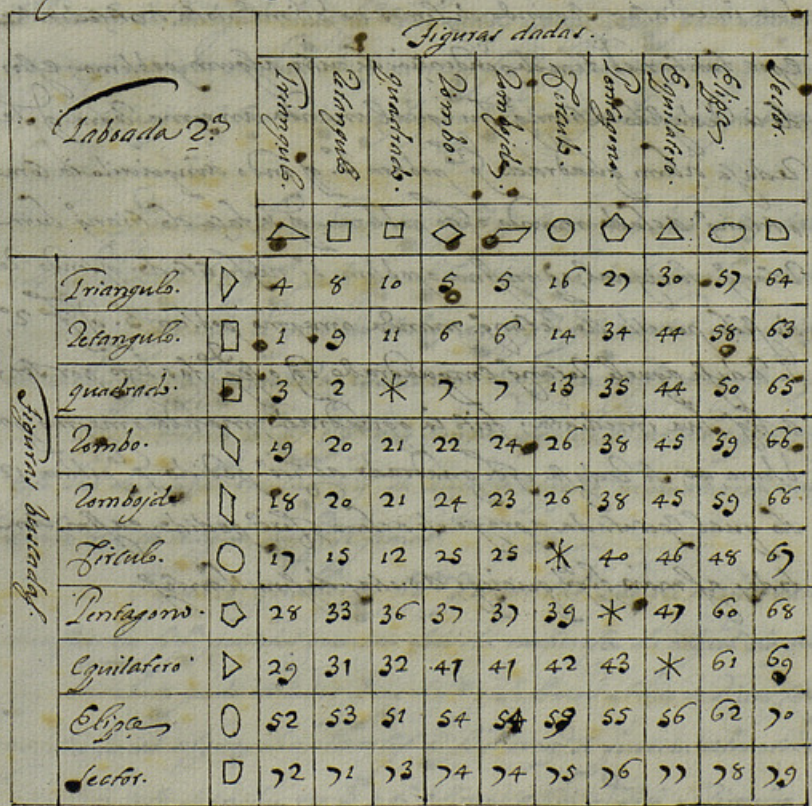 Figuras dadas.
Taboada 2ª
Triangulo. Retangulo quadrado. Rombo. Rombojde. Circulo. Pentagono. Equilatero. Elipse Sector
Triangulo. 4 8 10 5 5 16 27 30 57 64
Retangulo. 1 9 11 6 6 14 34 44 58 63
quadrado. 3 2 * 7 7 13 35 44 50 65
Rombo. 19 20 21 22 24 26 38 45 59 66
Rombojde 18 20 21 24 23 26 38 45 59 66
Circulo. 17 15 12 25 25 * 40 46 48 67
Pentagono. 28 33 36 37 37 39 * 47 60 68
Equilatero 29 31 32 41 41 42 43 * 61 69
Elipse 52 53 51 54 54 59 55 56 62 70
Sector. 72 71 73 74 74 75 76 77 78 79
Figuras buscadas.